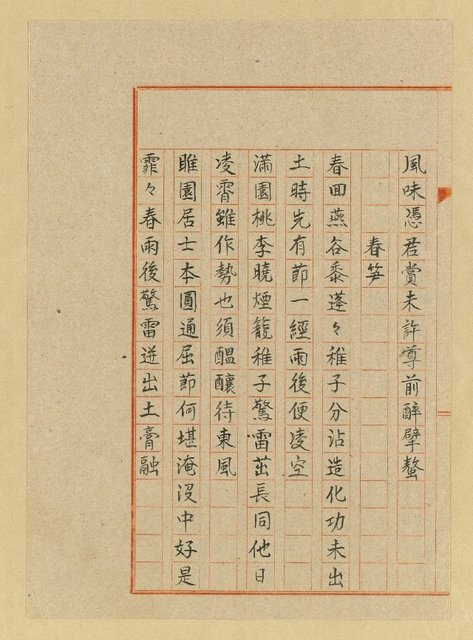 風味憑君賞未許尊前醉擘螯
春笋
春回燕谷黍蓬々稚子分沾造化功未出
土時先有節一經雨後便凌空
滿園桃李曉煙籠稚子驚雷茁長同他日
凌霄雖作勢也須醞釀待東風
睢園居士本圓通屈節何堪淹沒中好是
霏々春雨後驚雷迸出土膏融